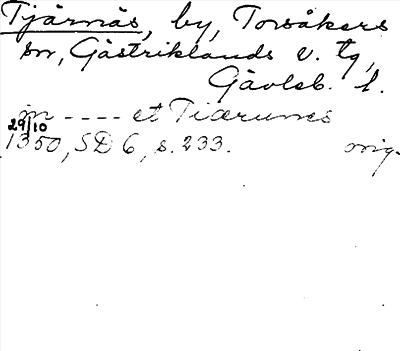 Tjärnäs, by, Torsåkers
sn, Gästriklands v. tg,
Gävleb. l.
in ---- et Tiærunes
29/10
1350, SD 6, s. 233. orig.